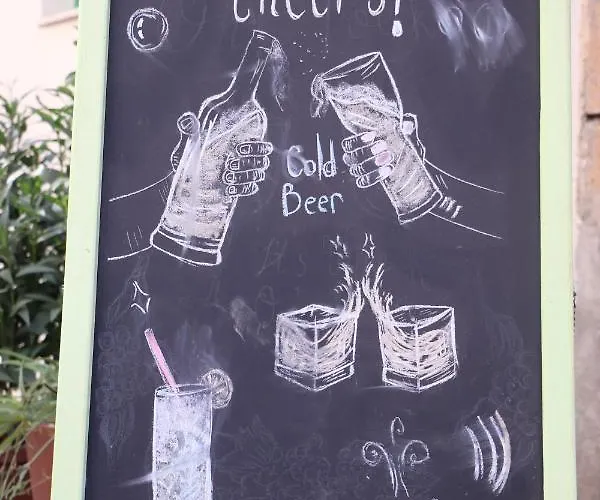 Cheers!
Cold
Beer